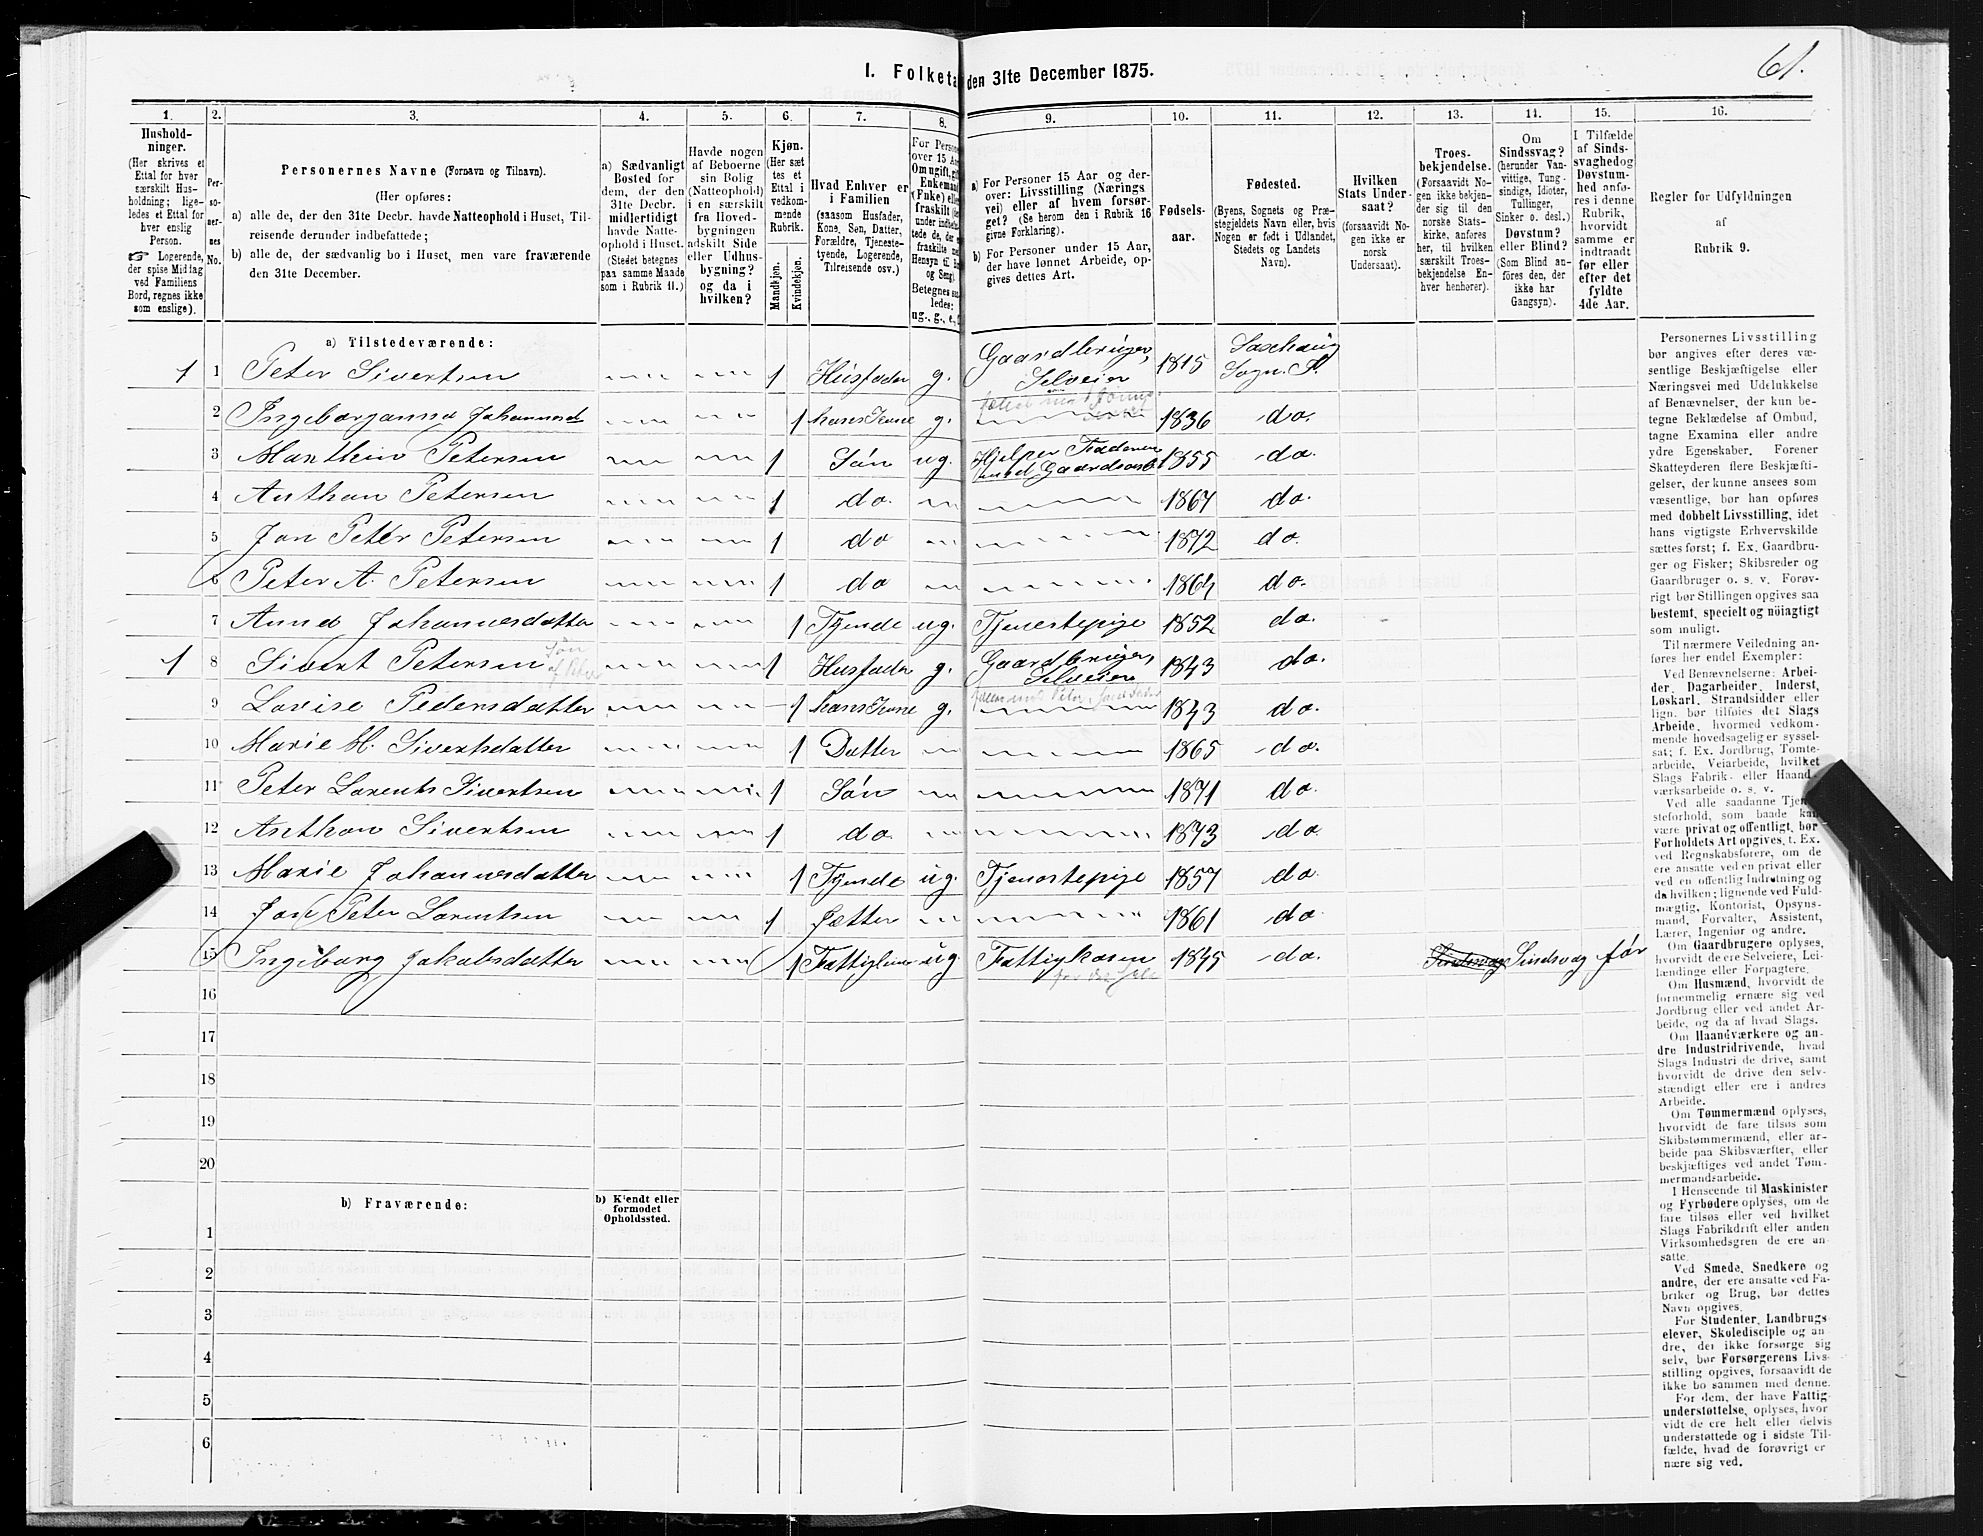 61.
I. Folketa den 31te December 1875.
1. 2. 3. 4. 5. 6. 7. 8. 9. 10. 11. 12. 13. 14. 15. 16.
Hushold-
ninger.
(Her skrives et
Ettal for hver
særskilt Hus-
holdning; lige-
ledes et Ettal for
hver enslig
Person.
☞ Logerende,
der spise Middag
ved Familiens
Bord, regnes ikke
som enslige).
Per-
so-
ner-
nes
No.
Personernes Navne (Fornavn og Tilnavn).
(Her opføres:
a) alle de, der den 31te Decbr. havde Natteophold i Huset, Til-
reisende derunder indbefattede;
b) alle de, der sædvanlig bo i Huset, men vare fraværende
den 31te December.
a) Sædvanligt
Bosted for
dem, der den
31te Decbr.
midlertidigt
havde Natte-
ophold i Huset.
(Stedet betegnes
paa samme Maade
som i Rubrik 11.)
Havde nogen
af Beboerne
sin Bolig
(Natteophold)
i en særskilt
fra Hoved-
bygningen
adskilt Side
eller Udhus-
bygning?
og da i
hvilken?
Kjøn.
(Her sæt
tes et
Ettal i
vedkom-
mende
Rubrik.
Mandkjøn.
Kvindekjøn.
Hvad Enhver er
i Familien
(saasom Husfader,
Kone, Søn, Datter,
Forældre, Tjeneste-
tyende, Logerende,
Tilreisende osv.)
For Person
over 15 Aar
Om ugift, gift
Enkemand
(Enke) eller
fraskilt
Betegnes saa-
ledes:
ug., g., e.,
a) For Personer 15 Aar og der-
over: Livsstilling (Nærings
vei) eller af hvem forsør-
get? (Se herom den i Rubrik 16
givne Forklaring).
b) For Personer under 15 Aar,
der have lønnet Arbeide, op-
gives dettes Art.
Fødsels-
aar.
Fødested.
(Byens, Sognets og Præ-
stegjeldets Navn eller, hvis
Nogen er født i Udlandet,
Stedets og Landets
Navn).
Hvilken
Stats Under-
saat?
(forsaavidt No-
gen ikke er
norsk
Undersaat).
Troes-
bekjendelse.
(Forsaavidt No-
gen ikke bekjen-
der sig til den
norske Stats-
kirke, anføres
her, til hvilken
særskilt Troes-
bekjendelse En-
hver henhører).
Om
Sindssvag?
(herunder Van-
vittige, Tung-
sindige, Idioter,
Tullinger,
Sinker o. desl.)
Døvstum?
eller Blind?
(Som Blind an-
føres den, der
ikke har
Gangsyn).
I Tilfælde
af Sinds-
svaghed og
Døvstum-
hed anfø-
res i denne
Rubrik,
hvorvidt
samme er
indtraadt
før eller
efter det
fyldte
4de Aar.
Regler for Udfyldningen
af
Rubrik 9.
a) Tilstedeværende:
1 1 Peter Sivertsen 1 Husfader g. Gaardbruger, Selveier 1815 Saxhaug Sogn. St.
2 Ingeborganna Johannesd 1 hans Kone g. 1836 do.
3 Marthin Petersen 1 Søn ug. Hjelper Faderen med Gaardsarb 1855 do.
4 Anthon Petersen 1 do. 1867 do.
5 Jon Peter Petersen 1 do 1872 do.
6 Peter A. Petersen 1 do 1864 do.
7 Anna Johannesdatter 1 Tjende ug. Tjenestepige 1852 do.
1 8 Sivert Petersen Søn af Peter 1 Husfader g. Gaardbruger, Selveier 1843 do.
9 Lovise Pedersdatter 1 hans Kone g. 1843 do.
10 Marie M. Sivertsdatter 1 Datter 1865 do.
11 Peter Lorents Sivertsen 1 Søn 1871 do.
12 Anthon Sivertsen 1 do. 1873 do.
13 Marie Johannesdatter 1 Tjende ug. Tjenestepige 1857 do.
14 Jon Peter Lorentsen 1 Fætter 1861 do.
15 Ingeborg Jakobsdatter 1 ug. Fattigkasen 1845 do. Sindsvag Sindsvag før
16
17
18
19
20
b) Fraværende:
b) Kjendt eller
formodet
Opholdssted.
1
2
3
4
5
6
Personernes Livsstilling
bør angives efter deres væ-
sentlige Beskjæftigelse eller
Næringsvei med Udelukkelse
af Benævnelser, der kun be-
tegne Beklædelse af Ombud,
tagne Examina eller andre
ydre Egenskaber. Forener
Skatteyderen flere Beskjæfti-
gelser, der kunne ansees som
væsentlige, bør han opføres
med dobbelt Livsstilling, idet
hans vigtigste Erhvervskilde
sættes først; f. Ex. Gaardbru-
ger og Fisker; Skibsreder og
Gaardbruger o. s. v. Forøv-
rigt bør Stillingen opgives saa
bestemt, specielt og nøiagtigt
som muligt.
Til nærmere Veiledning an-
føres her endel Exempler:
Ved Benævnelserne: Arbei-
der, Dagarbeider, Inderst,
Løskarl, Strandsidder eller
lign. bør tilføies det Slags
Arbeide, hvormed vedkom-
mende hovedsagelig er syssel-
sat; f. Ex. Jordbrug, Tomte-
arbeide, Veiarbeide, hvilket
Slags Fabrik- eller Haand-
værksarbeide o. s. v.
Ved alle saadanne Tjene-
steforhold, som baade kan
være privat og offentligt, bør
Forholdets Art opgives, f. Ex.
ved Regnskabsførere, om de
ere ansatte ved en privat eller
ved en offentlig Indretning og
da hvilken; lignende ved Fuld-
mægtig, Kontorist, Opsyns-
mand, Forvalter, Assistent,
Lærer, Ingeniør og andre.
Om Gaardbrugere oplyses,
hvorvidt de ere Selveiere, Lei-
lændinge eller Forpagtere.
Om Husmænd, hvorvidt de
fornemmelig ernære sig ved
Jordbrug eller ved andet Ar-
beide, og da af hvad Slags.
Om Haandværkere og an-
dre Industridrivende, hvad
Slags Industri de drive, samt
hvorvidt de drive den selv-
stændigt eller ere i andres
Arbeide.
Om Tømmermænd oplyses,
hvorvidt de fare tilsøs som
Skibstømmermænd, eller ar-
beide paa Skibsværfter, eller
beskjæftiges ved andet Tøm-
mermandsarbeide.
I Henseende til Maskinister
og Fyrbødere oplyses, om de
fare tilsøs eller ved hvilket
Slags Fabrikdrift eller anden
Virksomhedsgren de ere an-
satte.
Ved Smede, Snedkere og
andre, der ere ansatte ved Fa-
briker og Brug, bør dettes
Navn opgives.
For Studenter, Landbrugs-
elever, Skoledisciple og an-
dre, der ikke forsørge sig
selv, bør Forsørgerens Livs-
stilling opgives, forsaavidt de
ikke bo sammen med denne.
For dem, der have Fattig-
understøttelse, oplyses, hvor
vidt de ere helt eller delvis
understøttede og i sidste Til-
fælde, hvad de forøvrigt er
nære sig ved.